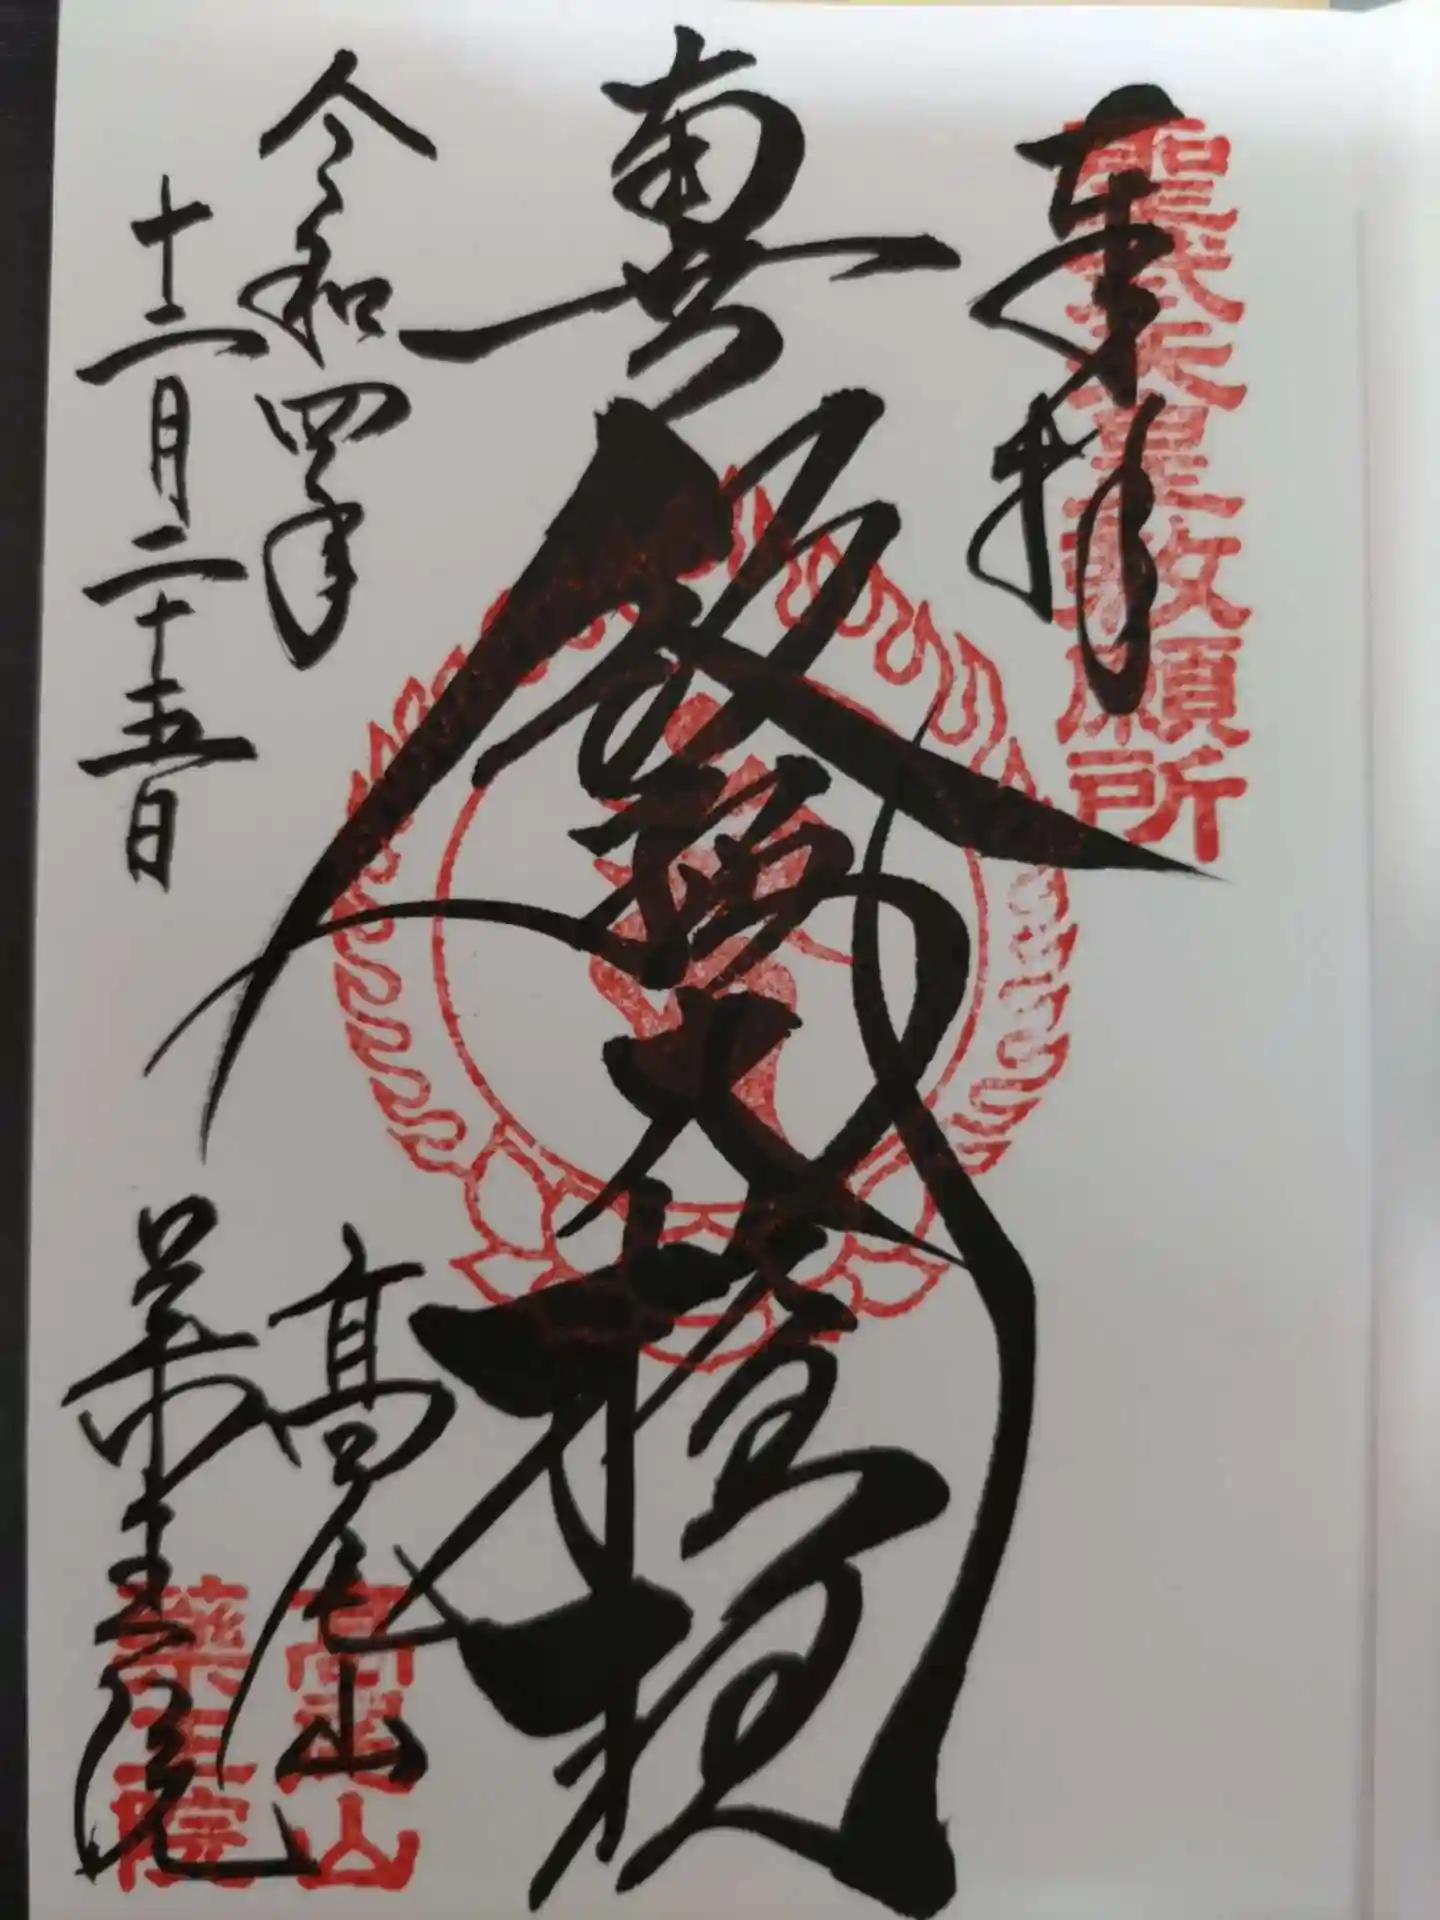 奉拝
聖武天皇敕願所
南無飯縄大権現
令和四年
十二月二十五日
高尾山
薬王院
高尾山
藥王院